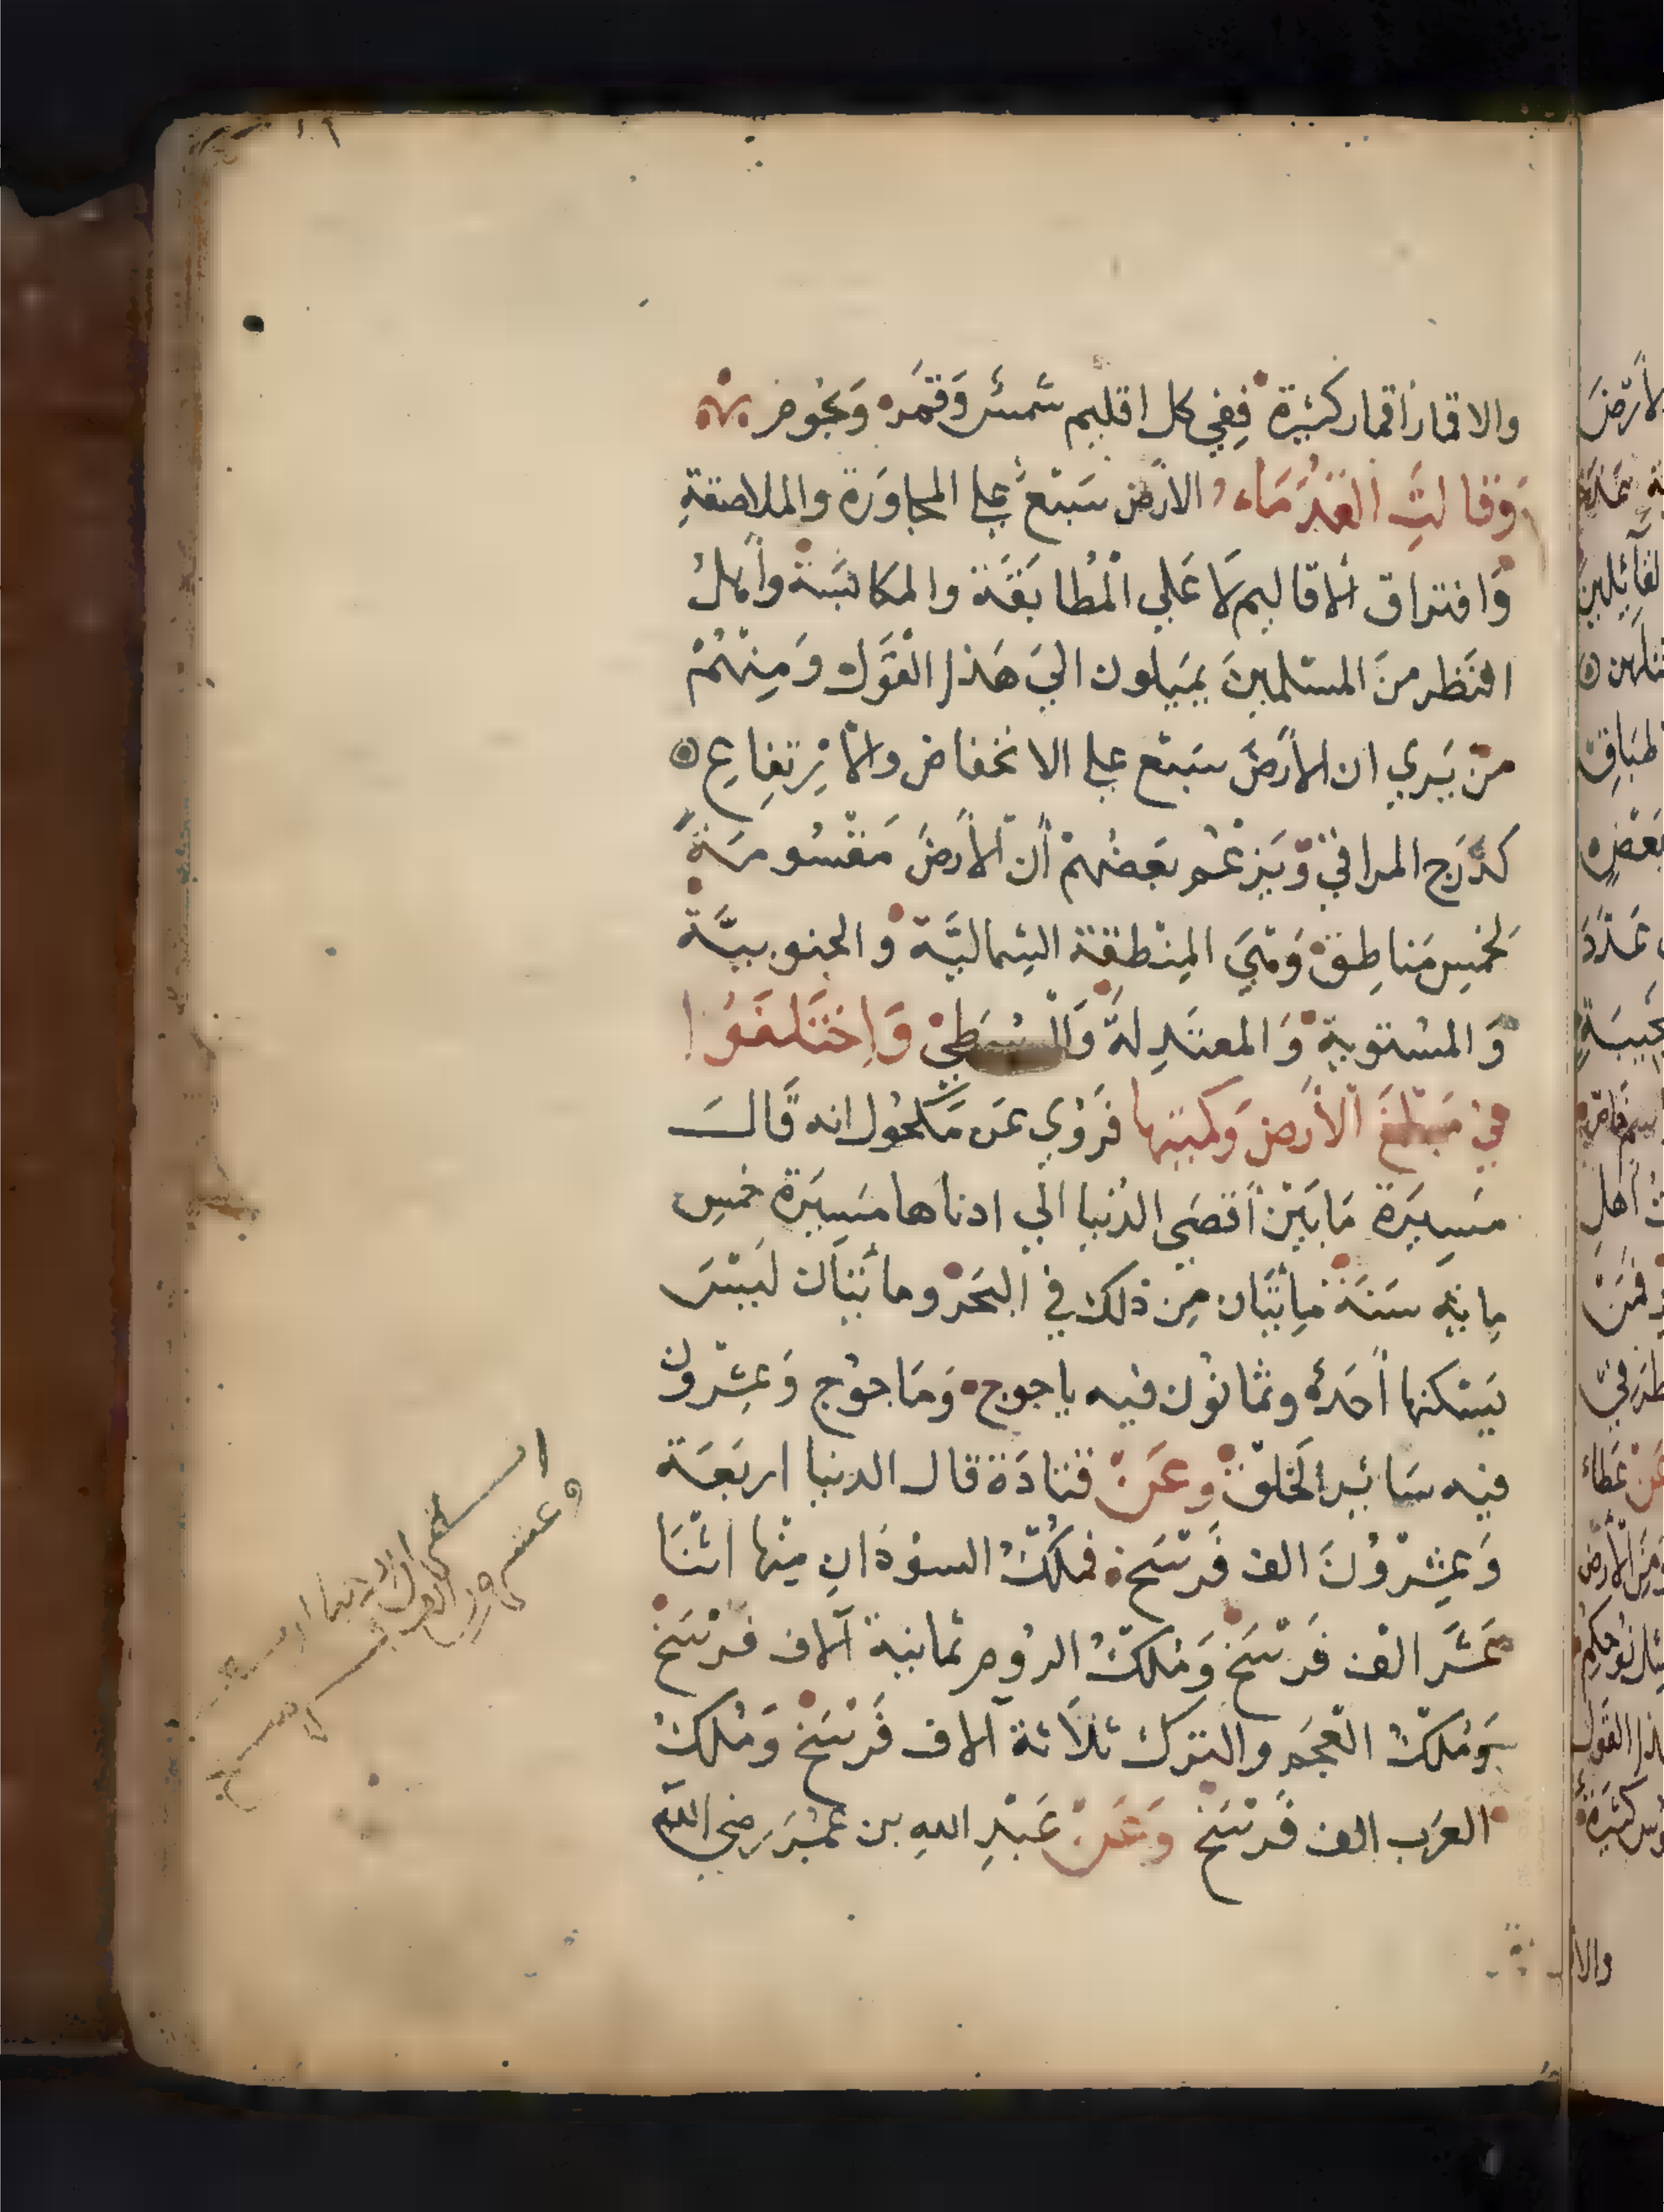 والاقمار أقمار كثيرة ففي كل اقليم شمس وقمر ونجوم
وقالت القدماء الارض سبع على المجاورة والملاصقة
وافتراق الاقاليم لا على المطابقة والمكابسة وأهل
النظر من المسلمين يميلون الى هذا القول ومنهم
من يرى ان الأرض سبع على الانخفاض والارتفاع
كدرج المراقي ويزعم بعضهم أن الأرض مقسومة
لخمس مناطق وهي المنطقة الشمالية والجنوبية
والمستوية والمعتدلة والوسطى واختلفوا
في مبلغ الأرض وكميتها فروي عن مكحول انه قال
مسيرة ما بين أقصى الدنيا الى ادناها مسيرة خمس
ماية سنة مايتان من ذلك في البحر ومائتان ليس
يسكنها أحد وثمانون فيه ياجوج وماجوج وعشرون
فيه سائر الخلق وعن قتادة قال الدنيا اربعة
وعشرون الف فرسخ فملك السودان منها اثنا
عشر الف فرسخ وملك الروم ثمانية آلاف فرسخ
وملك العجم والترك ثلاثة آلاف فرسخ وملك
العرب الف فرسخ وعن عبد الله بن عمر رضي الله
والا